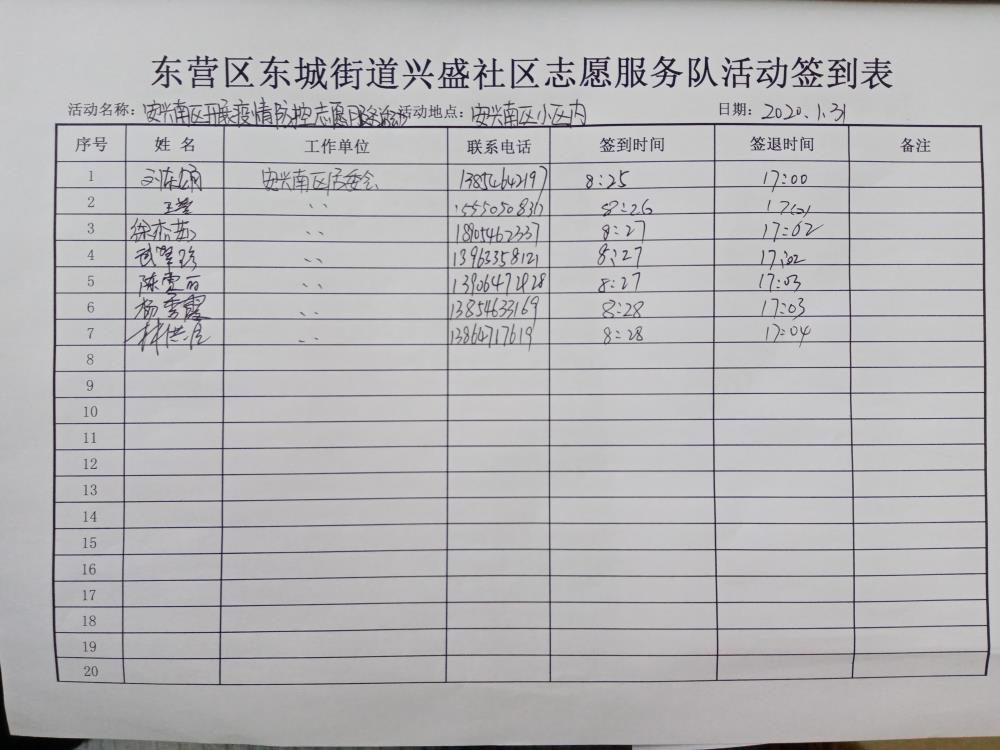 东营区东城街道兴盛社区志愿服务队活动签到表
活动名称：安兴南区开展疫情防控志愿服务活动 活动地点：安兴南区小区内 日期：2020.1.31
序号 姓名 工作单位 联系电话 签到时间 签退时间 备注
1 安兴南区居委会 13854642197 8:25 17:00
2 〃 8:26 17:01
3 徐杰茹 〃 18905462337 8:27 17:02
4 武翠珍 〃 13963358121 8:27 17:02
5 陈雪丽 〃 8:27 17:03
6 杨雪霞 〃 13854633169 8:28 17:03
7 林洪良 〃 13864717619 8:28 17:04
8
9
10
11
12
13
14
15
16
17
18
19
20